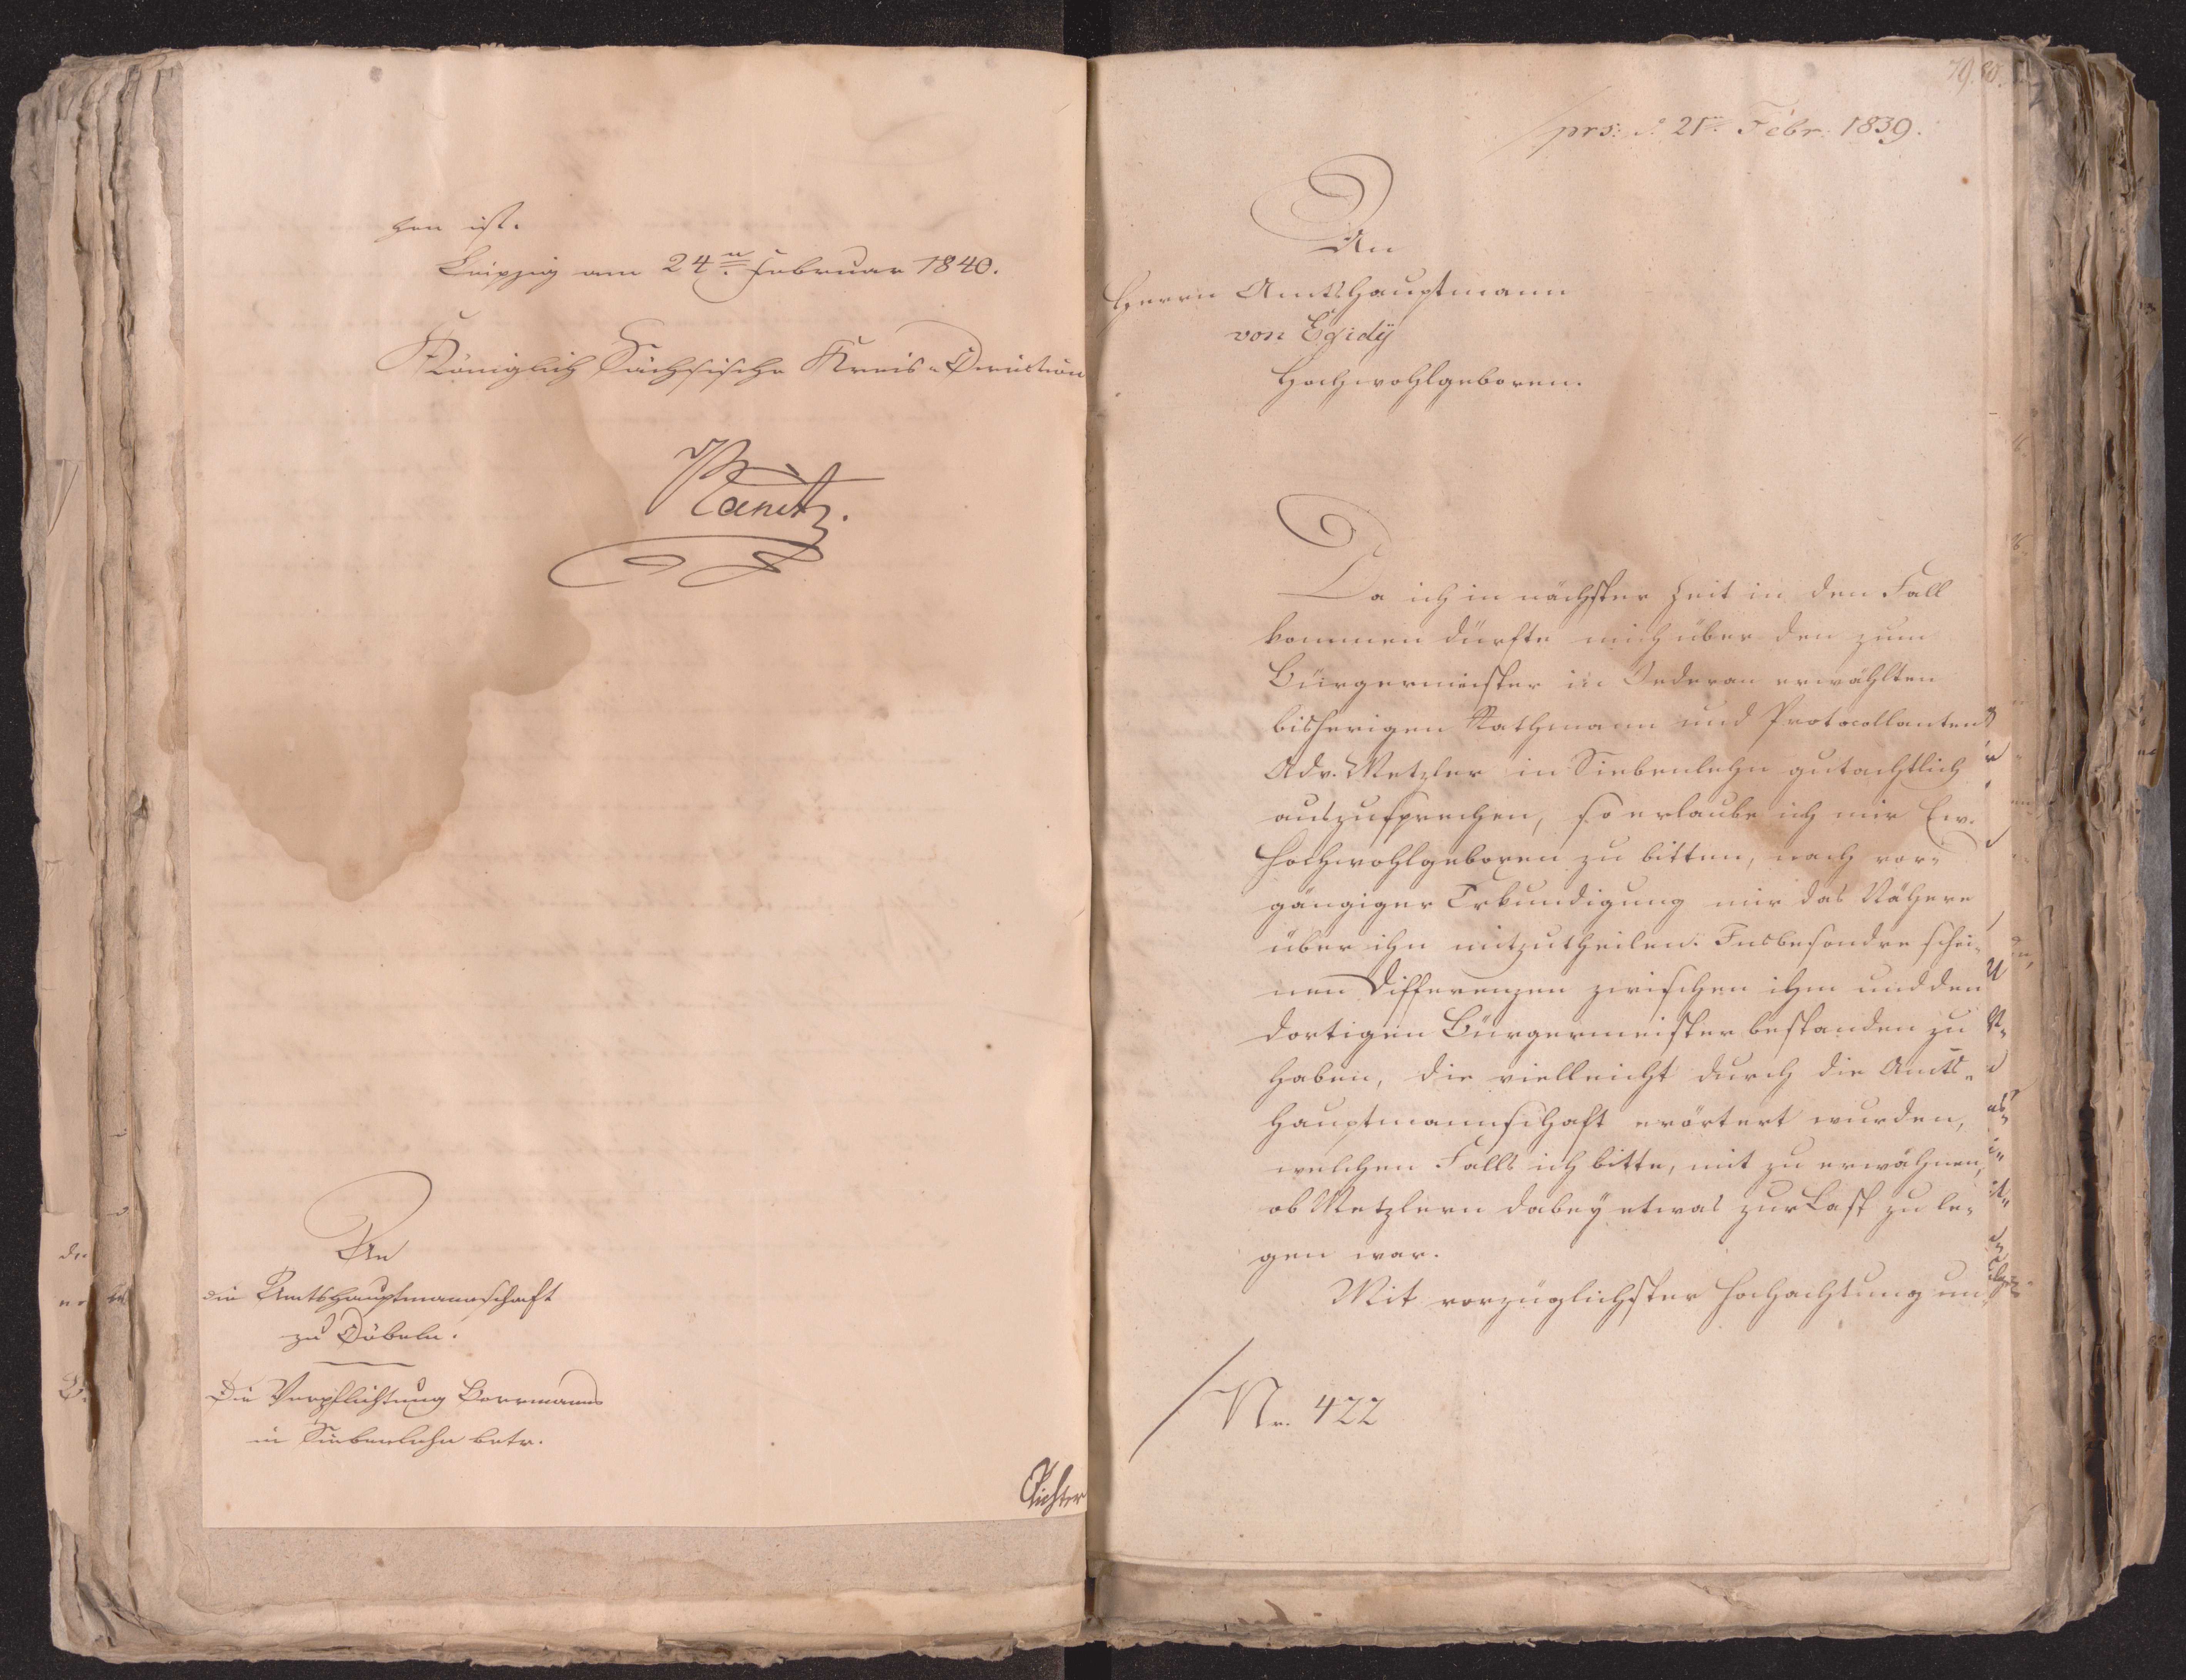 hen ist.
Leipzig am 24n. Februar 1840.
Königlich Sächsische Kreis-Direction
An
die Amtshauptmannschaft
zu Döbeln.
Die Verpflichtung Borrmanns
in Siebenlehn betr.
Richter
79. 80.
prs: d. 21n. Febr. 1839.
An
Herrn Amtshauptmann
von Egidÿ
Hochwohlgeboren.
Da ich in nächster Zeit in den Fall
kommen dürfte mich über den zum
Bürgermeister in Oederan erwählten
bisherigen Rathmann und Protocollanten
Adv. Metzler in Siebenlehn gutachtlich
auszusprechen, so erlaube ich mir Ew.
Hochwohlgeboren zu bitten, nach vor-
gängiger Erkundigung mir das Nähere
über ihn mitzutheilen. Insbesondre schei-
nen Differenzen zwischen ihm und den
dortigen Bürgermeister bestanden zu
haben, die vielleicht durch die Amts-
hauptmannschaft erörtert wurden,
welchen Falls ich bitte, mit zu erwähnen,
ob Metzlern dabey etwas zur Last zu le-
gen war.
Mit vorzüglichster Hochachtung un
Nr. 422